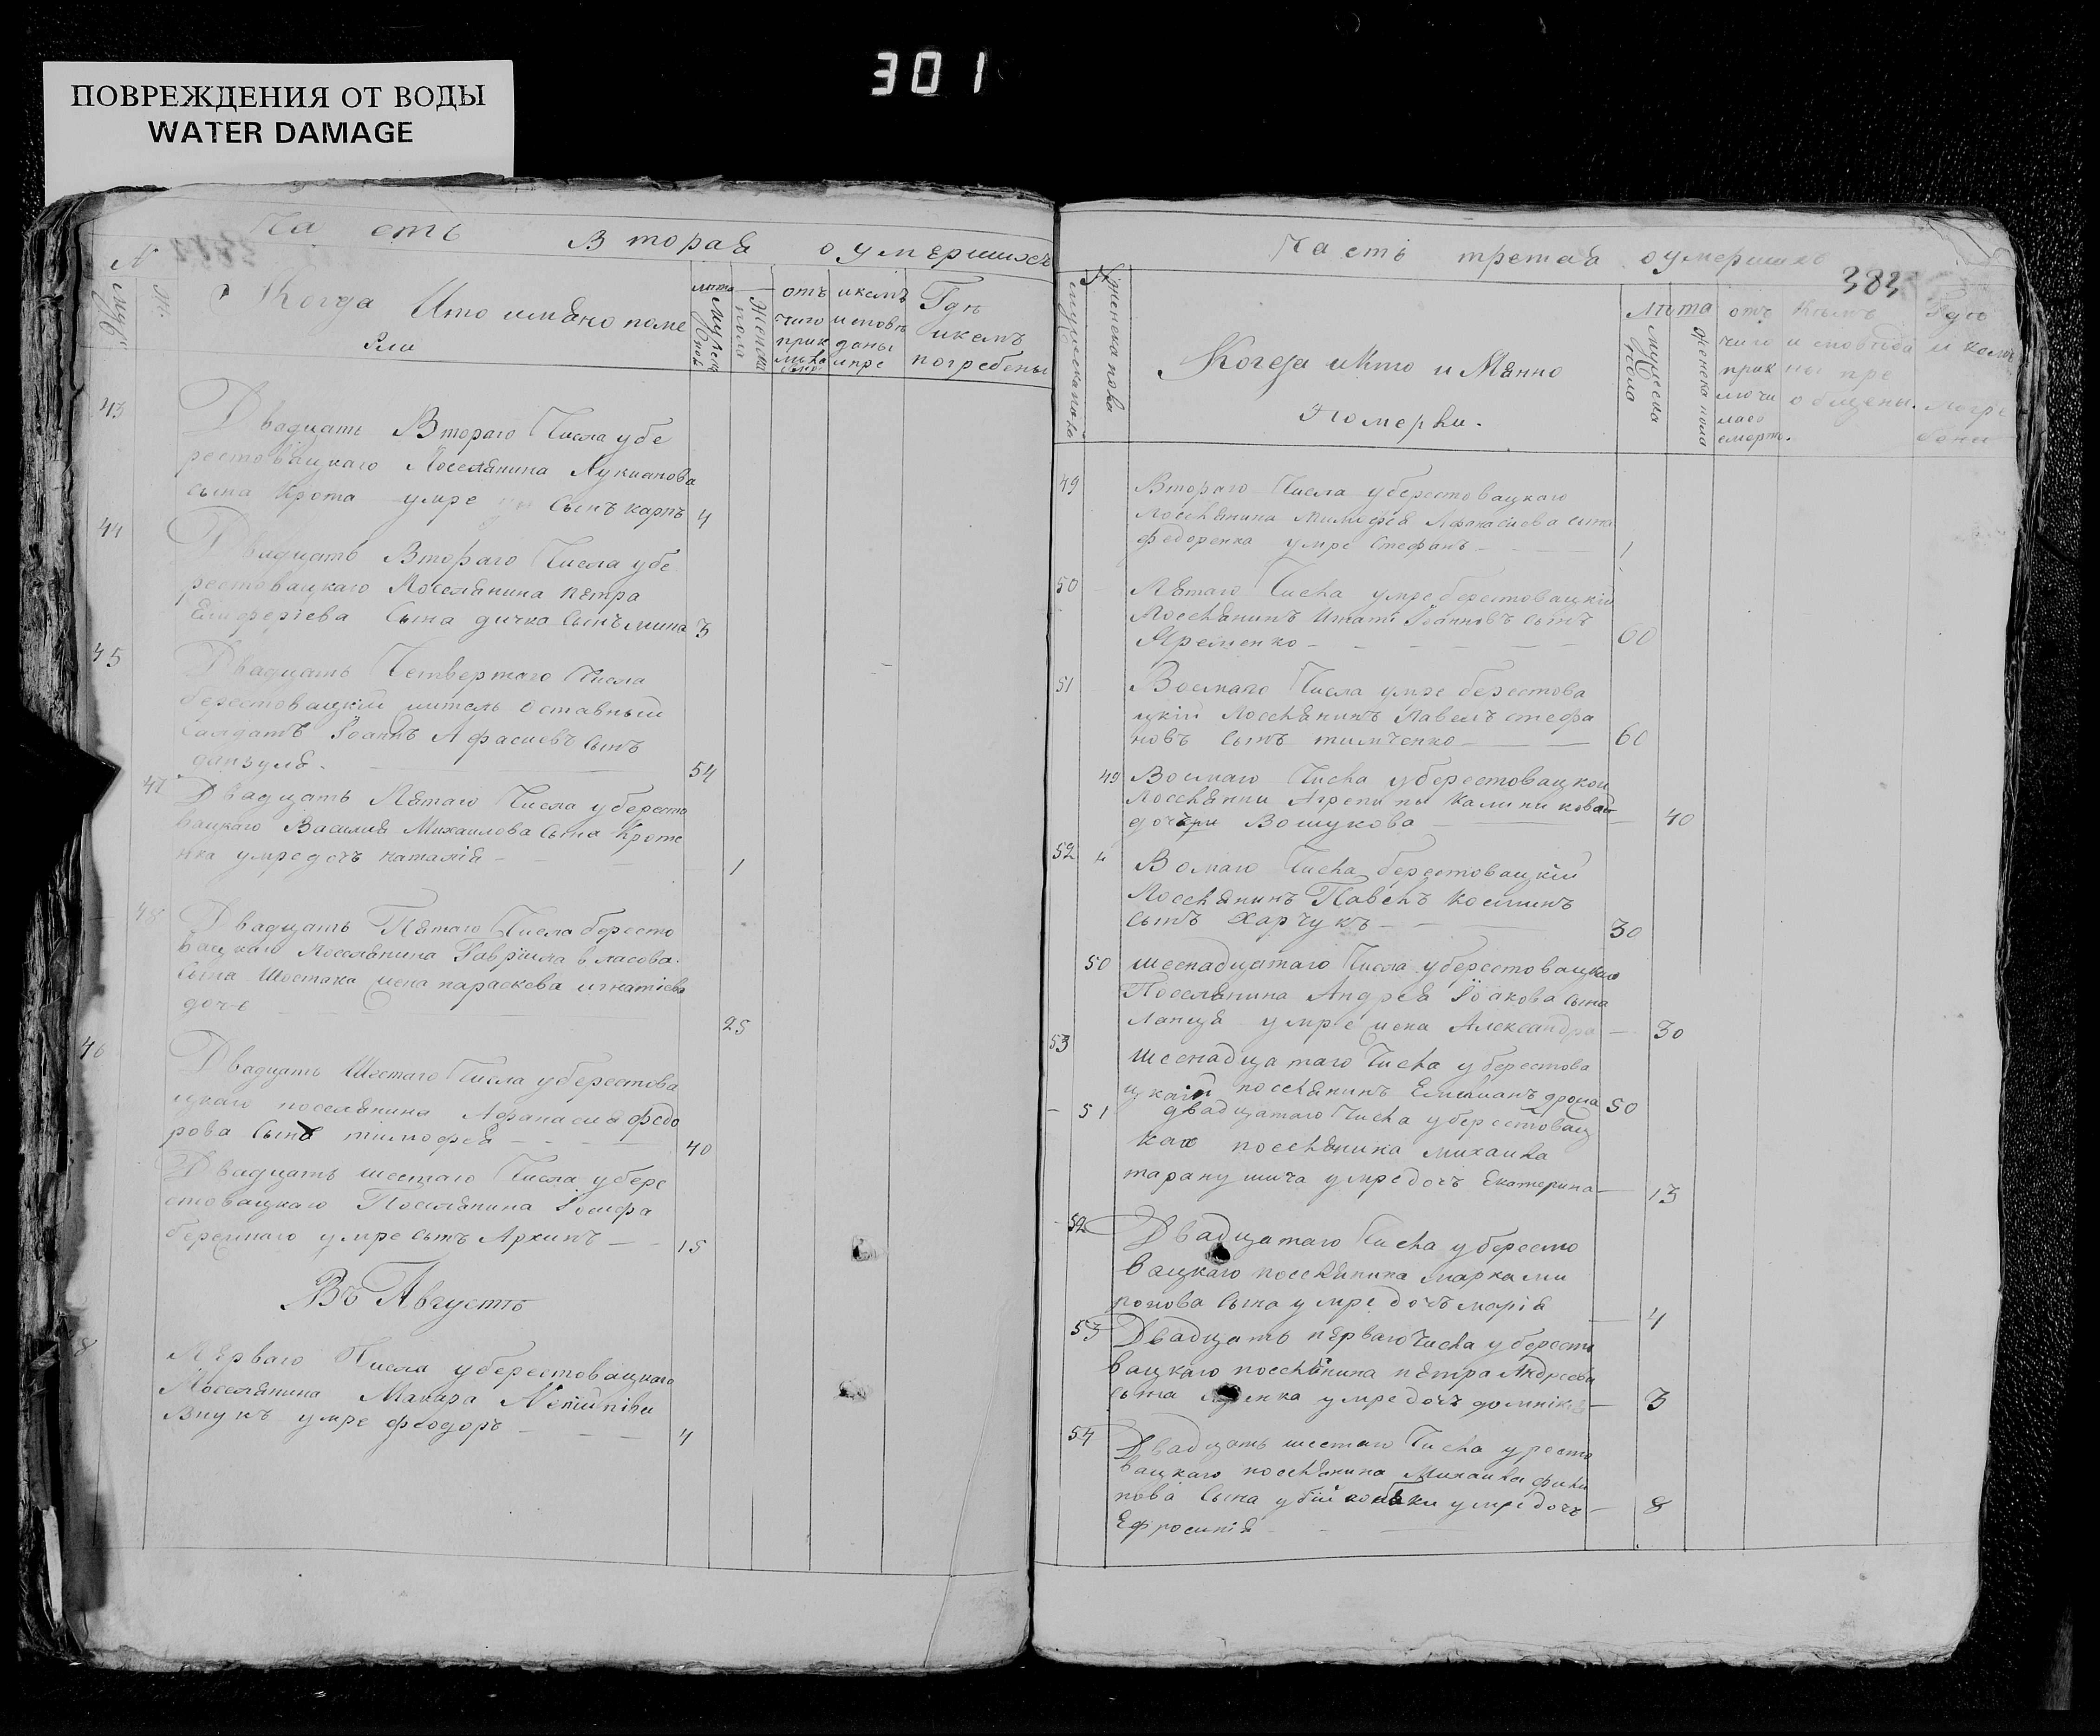 301
ПОВРЕЖДЕНИЯ ОТ ВОДЫ
WATER DAMAGE
Ча сть Вторая о умершихъ
№
Когда Кто имяно поме
рли
лѣта
Женска
пола
отъ чиго прик
икемъ исповѣ даны
Гдѣ
икемъ
погребены
43
Двадцать Втораго Числа убе
рестовацкаго Поселянина Лукианова
сына Крота умре сынъ карпъ 4
44
Двадцать Втораго Числа убе
рестовацкаго Поселянина петра
Елиферіева Сына дичка Сынъ мина 3
45
Двадцать Четвертаго Числа
берестовацкій житель Оставный
Салдатъ Іоаннъ Афасиевъ Сынъ
54
47
Двадцать Пятаго Числа убересто
вацкаго Василия Михаилова Сына Кроте
нка умре дочъ наталія 1
48
Двадцать Пятаго Числа бересто
вацкаго Поселянина Гавріила власова
Сына Шостака жена параскева игнатіева
доч-е 25
46
Двадцать Шестаго Числа уберестова
цкаго поселянина Афанасия федо
рова Сынъ тимофей 40
Двадцать шестаго Числа убере
стовацкаго Поселянина Іосифа
бережнаго умре Сынъ Архипъ 15
Въ Августѣ
8
Перваго Числа уберестовацкаго
Поселянина Макара
Внукъ умре феодоръ 4
Часть третая оумершихъ
383
№
мужеска пола
женска пола
Когда иКто иМянно
Померли.
Лѣта
мужеска пола
женска пола
отъ
чиго
прик
лючи
лась
смерть.
Кѣмъ
исповѣда
ны пре
общены.
Гдѣ
и кемъ
погре
бени
49
Втораго Числа уберестовацкаго
поселянина Тимофея Афанасиева сына
федоренка умре Стефанъ 1
50
Пятаго Числа умре берестовацкій
Поселянинъ Игнатъ Іоанновъ Сынъ
Яременко 60
51
Восмаго Числа умре берестова
цкій Поселянинъ Павелъ стефа
новъ Сынъ тимченко 60
49
Восмаго Числа уберестовацкой
Поселянки Агрепины Калиниковой
дочъри Вошукова 40
52
Восмаго Числа берестовацкій
Поселянинъ Павелъ Косминъ
Сынъ Харчукъ 30
50
шеснадцатаго Числа уберестовацкаго
Поселянина Андрея Іоакова Сына
Лапця умре жена Александра 30
53
шеснадцатаго Числа уберестова
цкаій поселянинъ Емилианъ дрога 50
51
двадцатаго Числа уберестовац
каго поселянина михаила
таранушича умре дочъ Екатерина 13
52
Двадцатаго Числа убересто
вацкаго поселянина марка ми
ронова Сына умре дочъ марія 4
53
Двадцать перваго Числа убересто
вацкаго поселянина петра Андреева
сына умре дочъ домникія 3
54
Двадцать шестаго Числа уресто
вацкаго поселянина Михаила фили
пова Сына убійконяки умре дочъ 8
Ефросинія